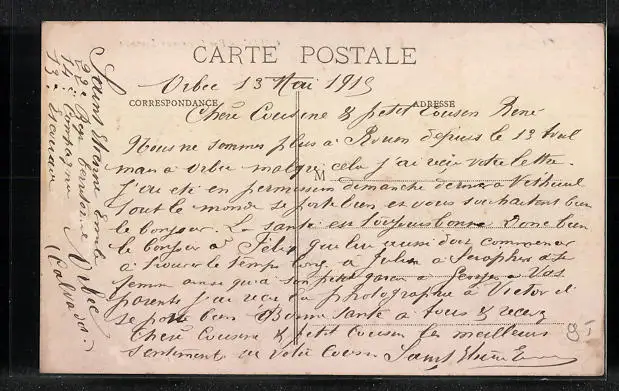 CARTE POSTALE
CORRESPONDANCE
ADRESSE
M
Orbec 13 Mai 1915
Chère Cousine & petit Cousin René
Nous ne sommes plus à Rouen depuis le 13 Avril
mais a Orbec malgré cela j'ai reçu votre lettre.
J'ai été en permission dimanche dernier à Vetheuil
tout le monde se porte bien et vous souhaitent bien
le bonjour. La santé est toujours bonne donc bien
le bonjour à Félix qui lui aussi doit commencer
à trouver le temps long à Julia à Seraphin et sa
femme ainsi qu'à son petit garçon à Georges a Vos
parents j'ai reçu la photographie à Victor il
se porte bien Bonne Santé à tous & recevez
Chère Cousine & petit Cousin les meilleurs
sentiments de Votre Cousin
22e Territorial
14e Compagnie
13e
Orbec
(Calvados)